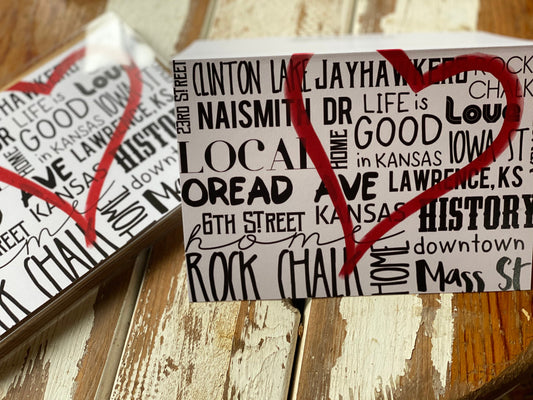 23RD STREET
CLINTON LAKE
JAYHAWKERS
ROCK
CHALK
NAISMITH DR
HOME
LIFE is
GOOD
in KANSAS
Love
IOWA ST
LOCAL
OREAD AVE
LAWRENCE, KS
6TH STREET
KANSAS
HISTORY
home
HOME
downtown
ROCK CHALK
Mass St
LIFE is
GOOD
in KANSAS
Love
IOWA ST
HOME
AVE
LAWRENCE, KS
STREET
KANSAS
HISTORY
home
HOME
downtown
ROCK CHALK